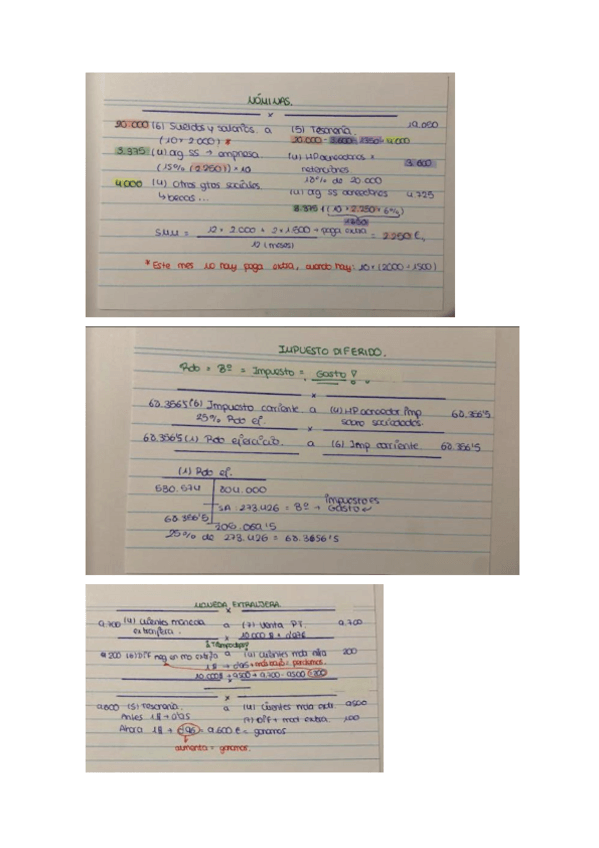 NÓMINAS.
x
20.000 (6) Sueldos y salarios. a (5) Tesorería. 19.050
(10 * 2.000) * 20.000 - 3.600 - 1350 + 4.000
3.375 (6) crg SS → empresa. (4) HP acreedores x 3.600
(15% (2.250)) * 10 retenciones
18% de 20.000
4.000 (4) Otros gtos sociales (4) org SS acreedores 4.725
↳ becas... 3.375 + (10 * 2.250 * 6%)
1350
12 * 2.000 + 2 * 1.500 → paga extra
= 2.250 €,
12 (meses)
* Este mes no hay paga extra, cuando hay: 10 * (2000 + 1500)
IMPUESTO DIFERIDO.
Rdo = Bº = Impuesto = Gasto!
x
68.356'5 (6) Impuesto corriente a (4) HP acreedor Imp 68.356'5
25% Rdo ej. sobre sociedades.
x
68.356'5 (1) Rdo ejercicio. a (6) Imp corriente. 68.356'5
(1) Rdo ej.
530.574 804.000
SA: 273.426 = Bº → Impuesto es Gasto
68.356'5
205.069'5
25% de 273.426 = 68.3656'5
MONEDA EXTRANJERA
x
9.700 (4) Clientes moneda a (7) Venta PT. 9.700
extranjera. 10.000 $ * 0'97€
x
* 200 (6) Diff neg en mo extrj a (4) Clientes mda 200
1$ → 0'95 + más bajo: perdemos.
10.000$ * 9500 → 9.700 - 9500 = 200
x
9.600 (5) Tesorería a (4) Clientes mda extr. 9500
Antes 1$ → 0'95 (7) Diff + mod extra. 100
Ahora 1$ → 0'96 = 9.600 € = ganamos
aumenta = ganamos.